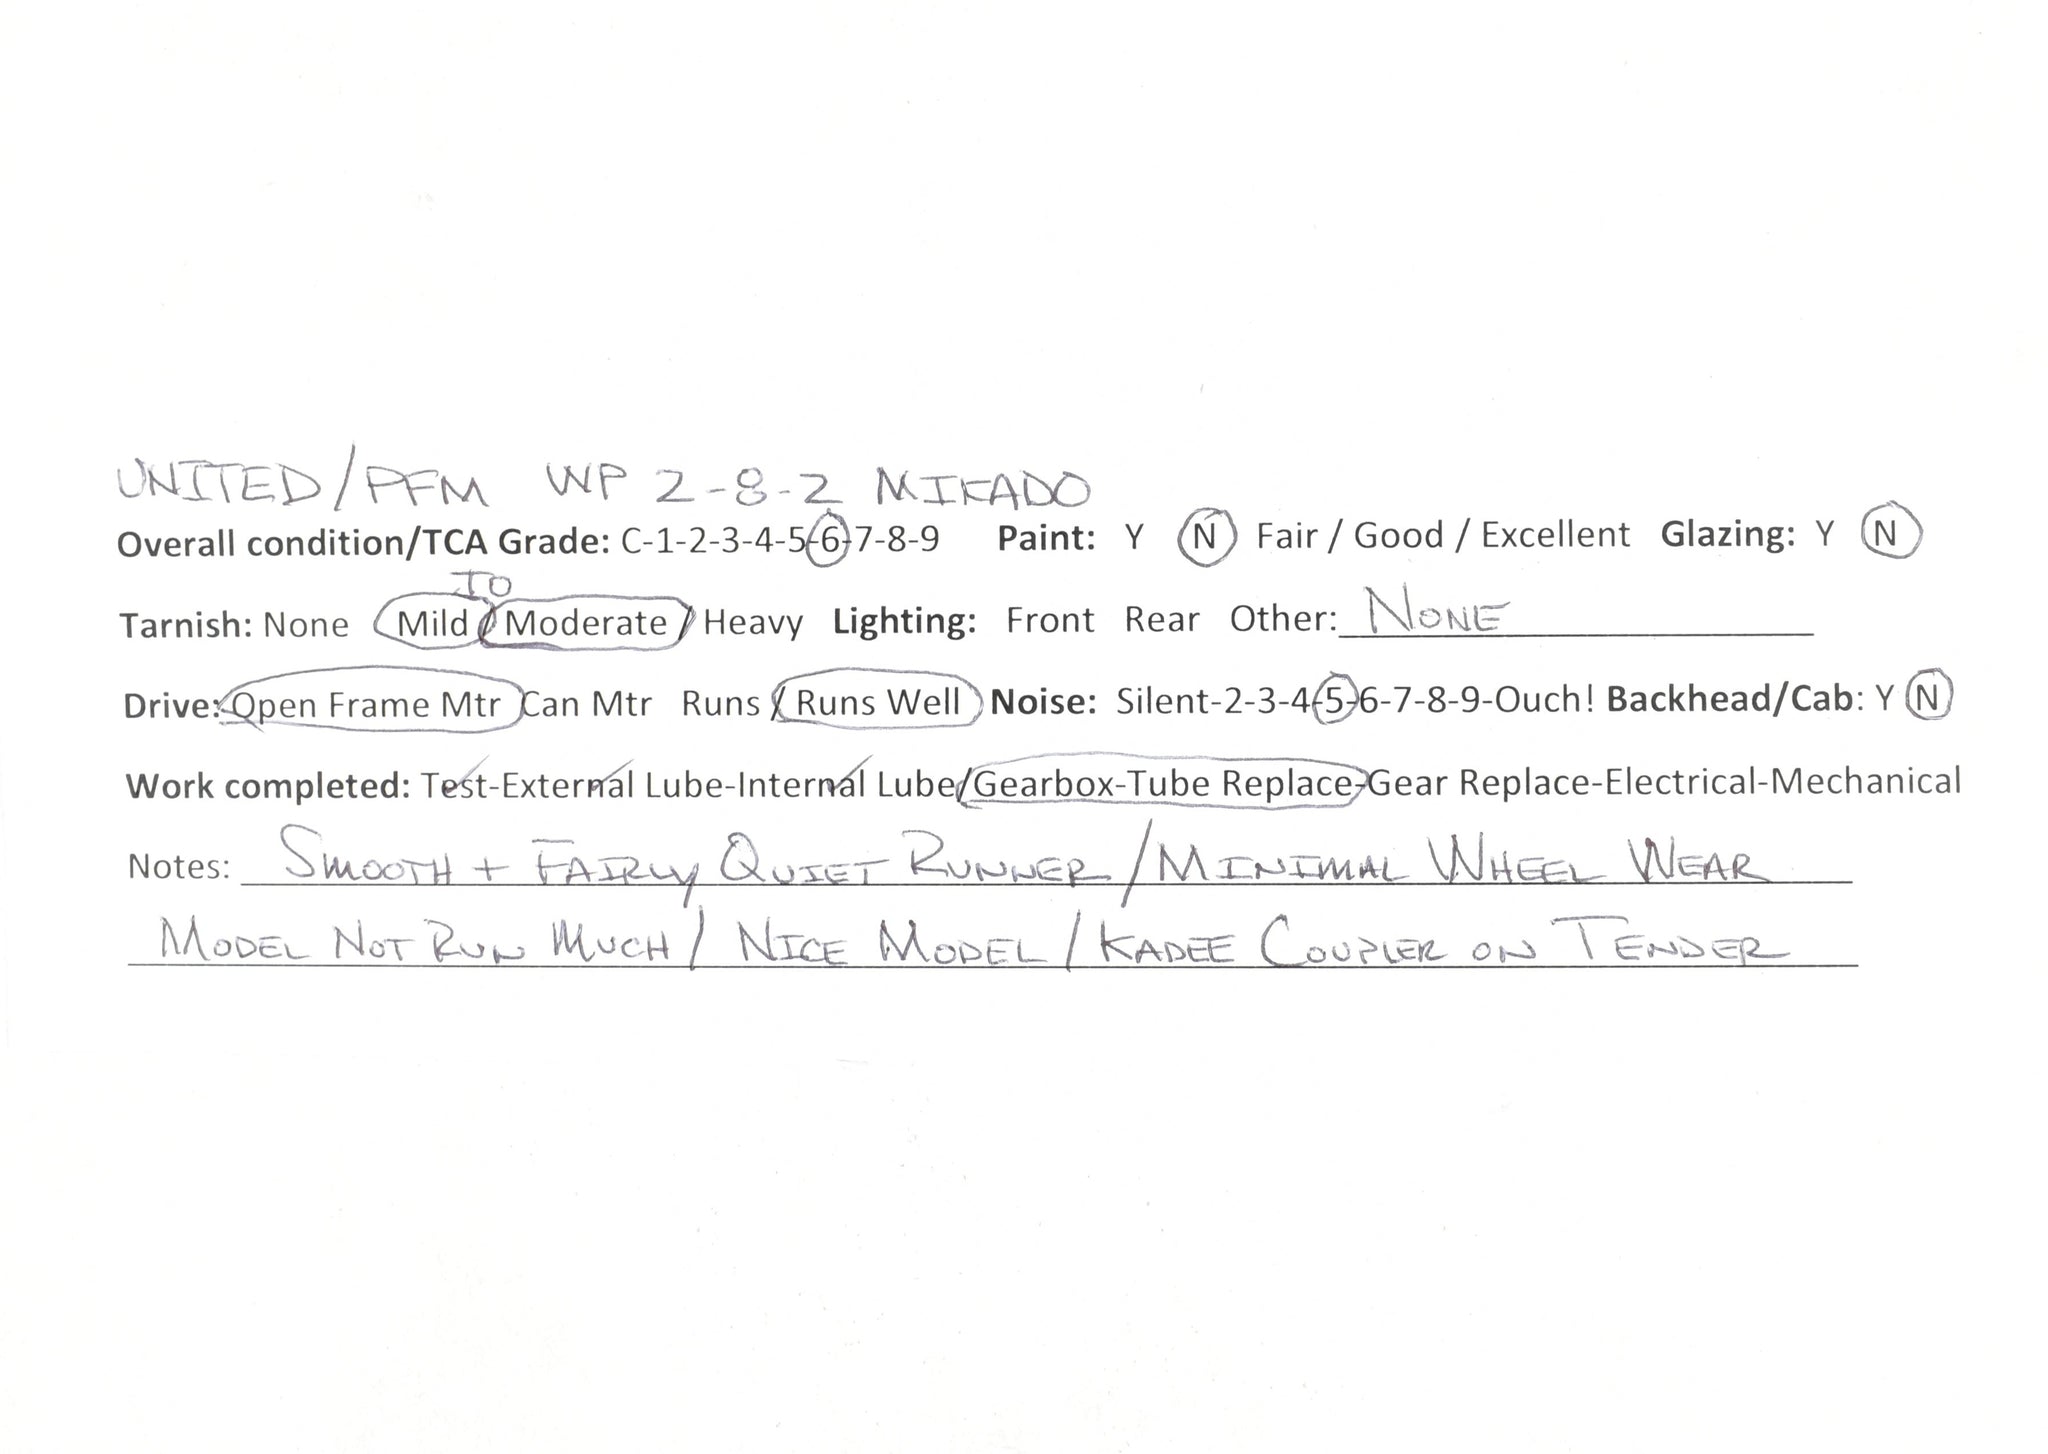 UNITED/PFM WP 2-8-2 MIKADO
Overall condition/TCA Grade: C-1-2-3-4-5-6-7-8-9 Paint: Y N Fair / Good / Excellent Glazing: Y N
TO
Tarnish: None Mild / Moderate / Heavy Lighting: Front Rear Other: NONE
Drive: Open Frame Mtr Can Mtr Runs / Runs Well Noise: Silent-2-3-4-5-6-7-8-9-Ouch! Backhead/Cab: Y N
Work completed: Test-External Lube-Internal Lube/Gearbox-Tube Replace-Gear Replace-Electrical-Mechanical
Notes: SMOOTH + FAIRLY QUIET RUNNER / MINIMAL WHEEL WEAR
MODEL NOT RUN MUCH / NICE MODEL / KADEE COUPLER ON TENDER